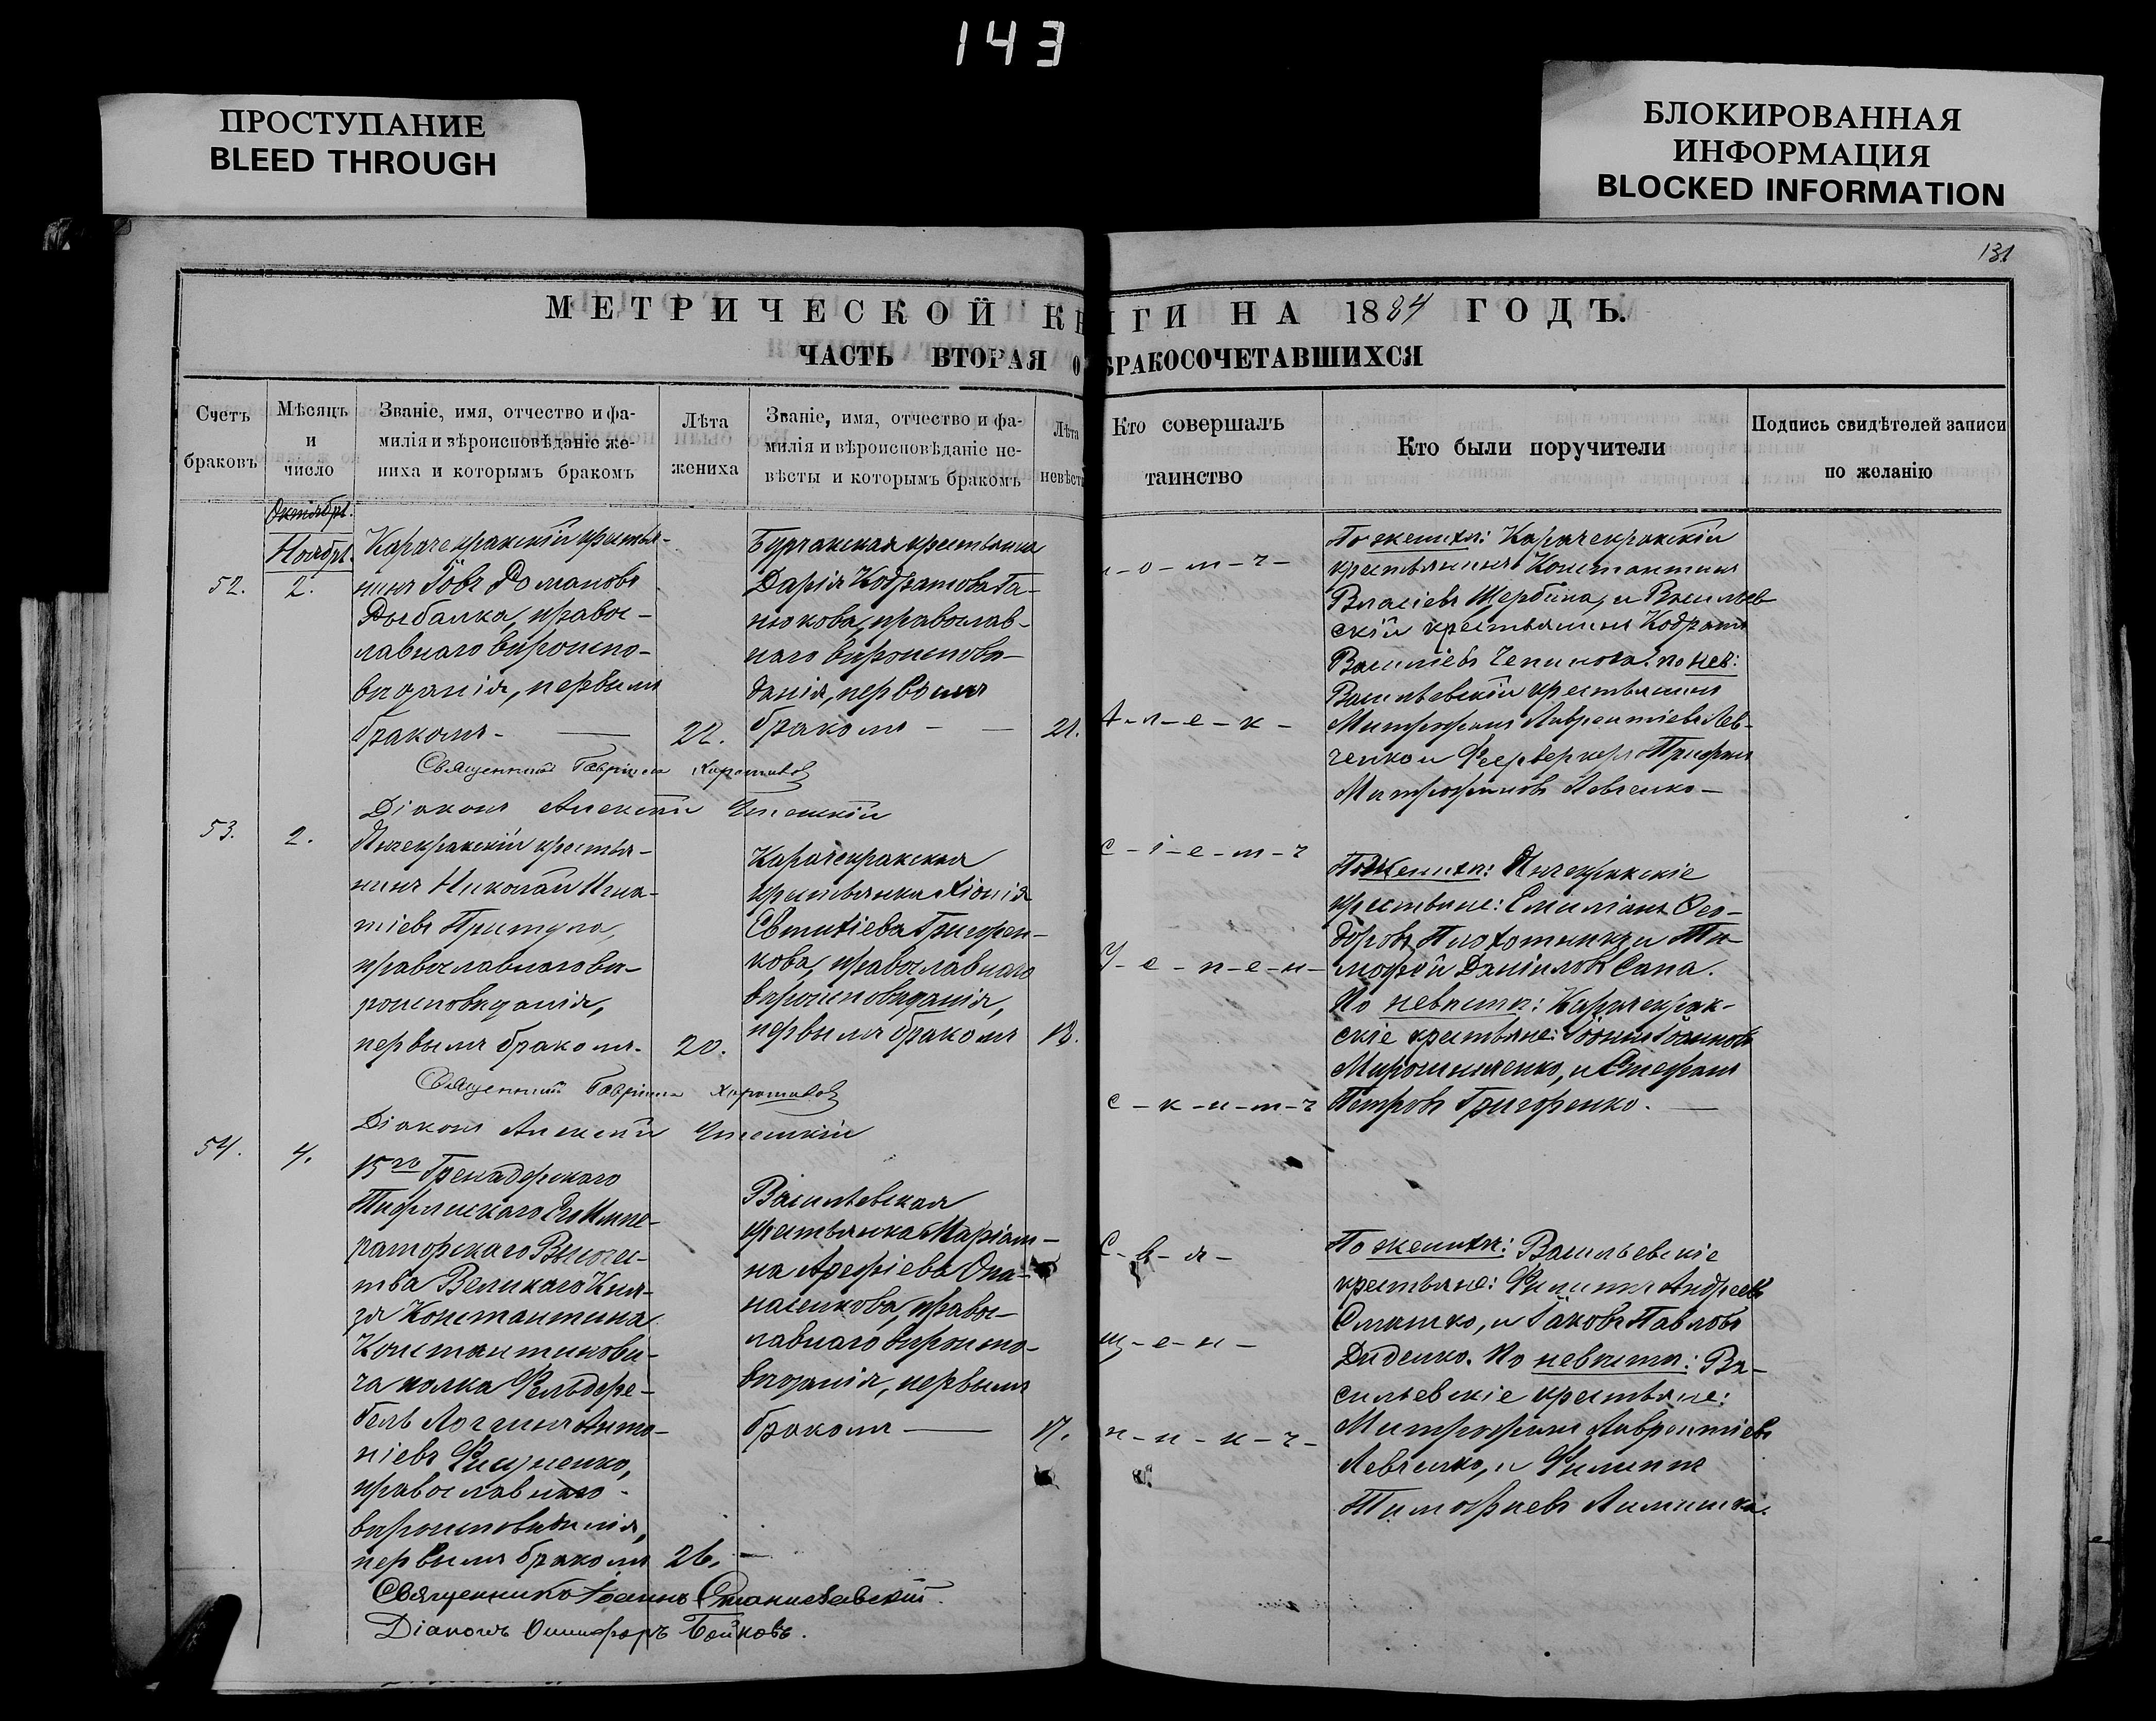 143
ПРОСТУПАНИЕ
BLEED THROUGH
БЛОКИРОВАННАЯ
ИНФОРМАЦИЯ
BLOCKED INFORMATION
131
МЕТРИЧЕСКОЙ КН ИГИ НА 1884 ГОДЪ.
ЧАСТЬ ВТОРАЯ О БРАКОСОЧЕТАВШИХСЯ
Счетъ
браковъ
Мѣсяцъ
и
число
Званіе, имя, отчество и фа-
милія и вѣроисповѣданіе же-
ниха и которымъ бракомъ
Лѣта
жениха
Званіе, имя, отчество и фа-
милія и вѣроисповѣданіе не-
вѣсты и которымъ бракомъ
Лѣта
невѣсты
Кто совершалъ
таинство
Кто были поручители
Подпись свидѣтелей записи
по желанію
Октябрь.
Ноябрь.
52.
2.
Карачекракскій крестья-
нинъ Іовъ Домановъ
Рыбалка, правос-
лавнаго вѣроиспо-
вѣданія, первымъ
бракомъ
22.
Бурчакская крестьянка
Дарія Кодратова Га-
нюкова, православ-
наго вѣроисповѣ-
данія, первымъ
бракомъ
21.
По женихѣ: Карачекракскій
крестьянинъ Константинъ
Власіевъ Щербина, и Васильев-
скій крестьянинъ Кодратъ
Василіевъ по нев:
Васильевскій крестьянинъ
Митрофанъ Лаврентіевъ Лев-
ченко и Фейерверкеръ Трифонъ
Митрофановъ Левченко
Священникъ Гавріилъ
Діаконъ Алексѣй
53.
2.
Янчекракскій крестья-
нинъ Николай Игна-
тіевъ Притула,
православнаго вѣ-
роисповѣданія,
первымъ бракомъ.
20.
Карачекракская
крестьянка Хіонія
Евтихіева Григорен-
кова, православнаго
вѣроисповѣданія,
первымъ бракомъ
По женихѣ: Янчекракскіе
крестьяне: Емиліанъ Ѳео-
доровъ и Ти-
моѳей Даніиловъ Сапа.
По невѣстѣ: Карачекрак-
скіе крестьяне:
Мирошниченко, и Стефанъ
Петровъ Григоренко.
Священникъ Гавріилъ
Діаконъ Алексѣй
54.
4.
15го Гренадерскаго
Тифлисскаго Его Импе-
раторскаго Высочес-
тва Великаго Кня-
зя Константина
Константинови-
ча полка Фельдфе-
бель Логгинъ Анто-
ніевъ
православнаго
вѣроисповѣданія,
первымъ бракомъ
26.
Васильевская
крестьянка Маріам-
на Арефіева Опа-
насенкова, правос-
лавнаго вѣроиспо-
вѣданія, первымъ
бракомъ
17.
С-в-я-
щ-е-н-
н-и-к-ъ-
По женихѣ: Васильевскіе
крестьяне: Филиппъ Андреевъ
Сташко, и Іаковъ Павловъ
Диденко. По невѣстѣ: Ва-
сильевскіе крестьяне:
Митрофанъ Лаврентіевъ
Левченко, и Филиппъ
Тимоѳеевъ
Священникъ Іоаннъ Станиславскій.
Діаконъ Онисифоръ Бойковъ.